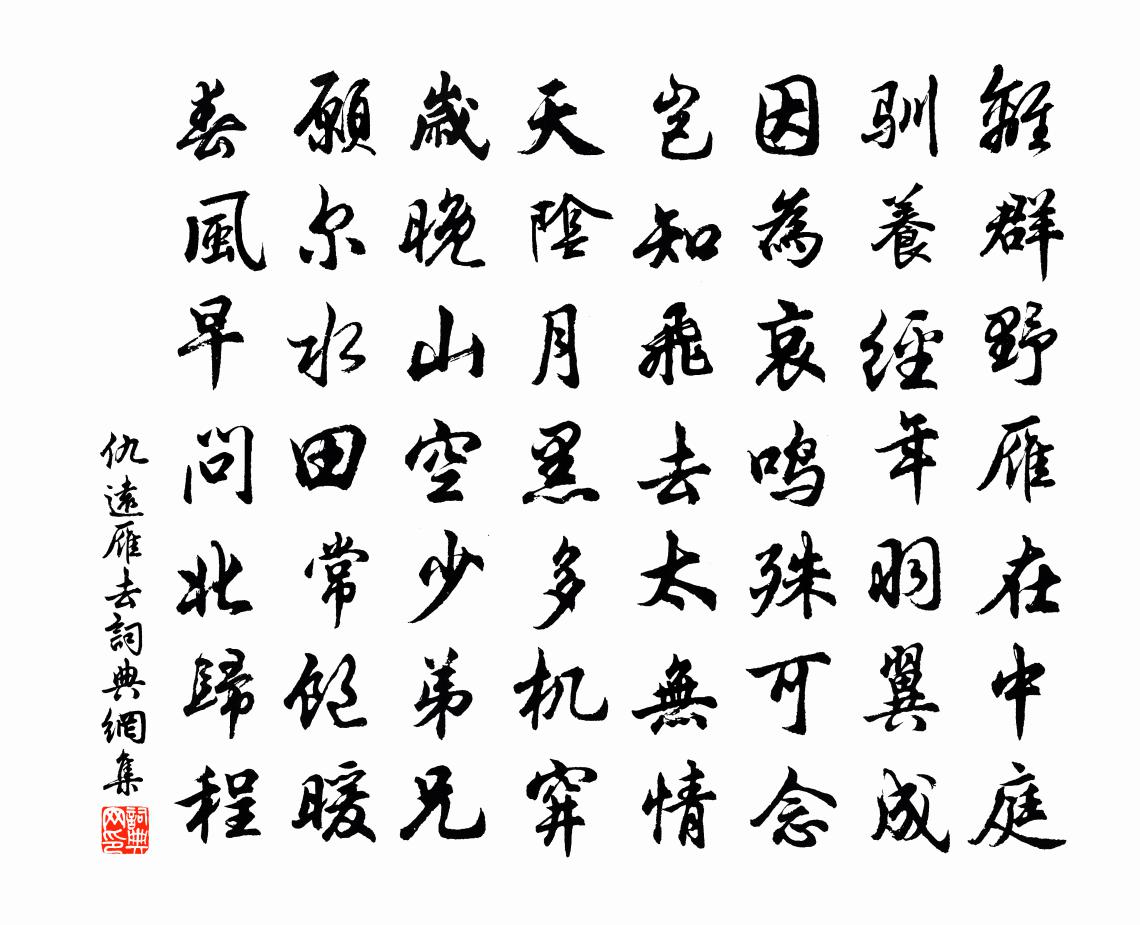 離群野雁在中庭
馴養經年羽翼成
因為哀鳴殊可念
豈知飛去太無情
天陰月黑多机穽
歲晚山空少弟兄
願尔水田常飽暖
春風早問北歸程
仇遠雁去詞典網集
詞典网印